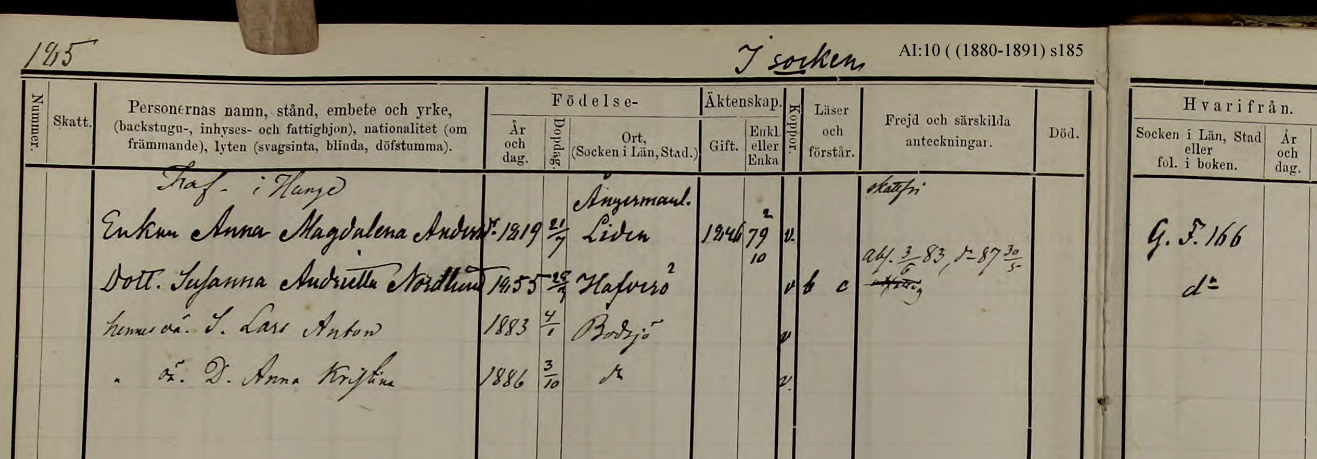 185 I socken AI:10 ( (1880-1891) s185
Nummer. Skatt. Personernas namn, stånd, embete och yrke, (backstugu-, inhyses- och fattighjon), nationalitet (om främmande), lyten (svagsinta, blinda, döfstumma). Födelse- År och dag. Dopdag. Ort, (Socken i Län, Stad.) Äktenskap. Gift. Enkl. eller Enka Koppor. Läser och förstår. Frejd och särskilda anteckningar. Död. Hvarifrån. Socken i Län, Stad eller fol. i boken. År och dag.
i Hunge Ångermanl. skattefri
Enkan Anna Magdalena Anders dr. 1819 21/7 Liden 1846 79 2/10 v. G. F. 166
Dott. Susanna Andrietta Nordlund 1855 Hafverö 2 v b c abs. 3/6 83, do 87 30/5 do
hennes oä. S. Lars Anton 1883 4/1 Bodsjö v
" oä. D. Anna Kristina 1886 3/10 do v.